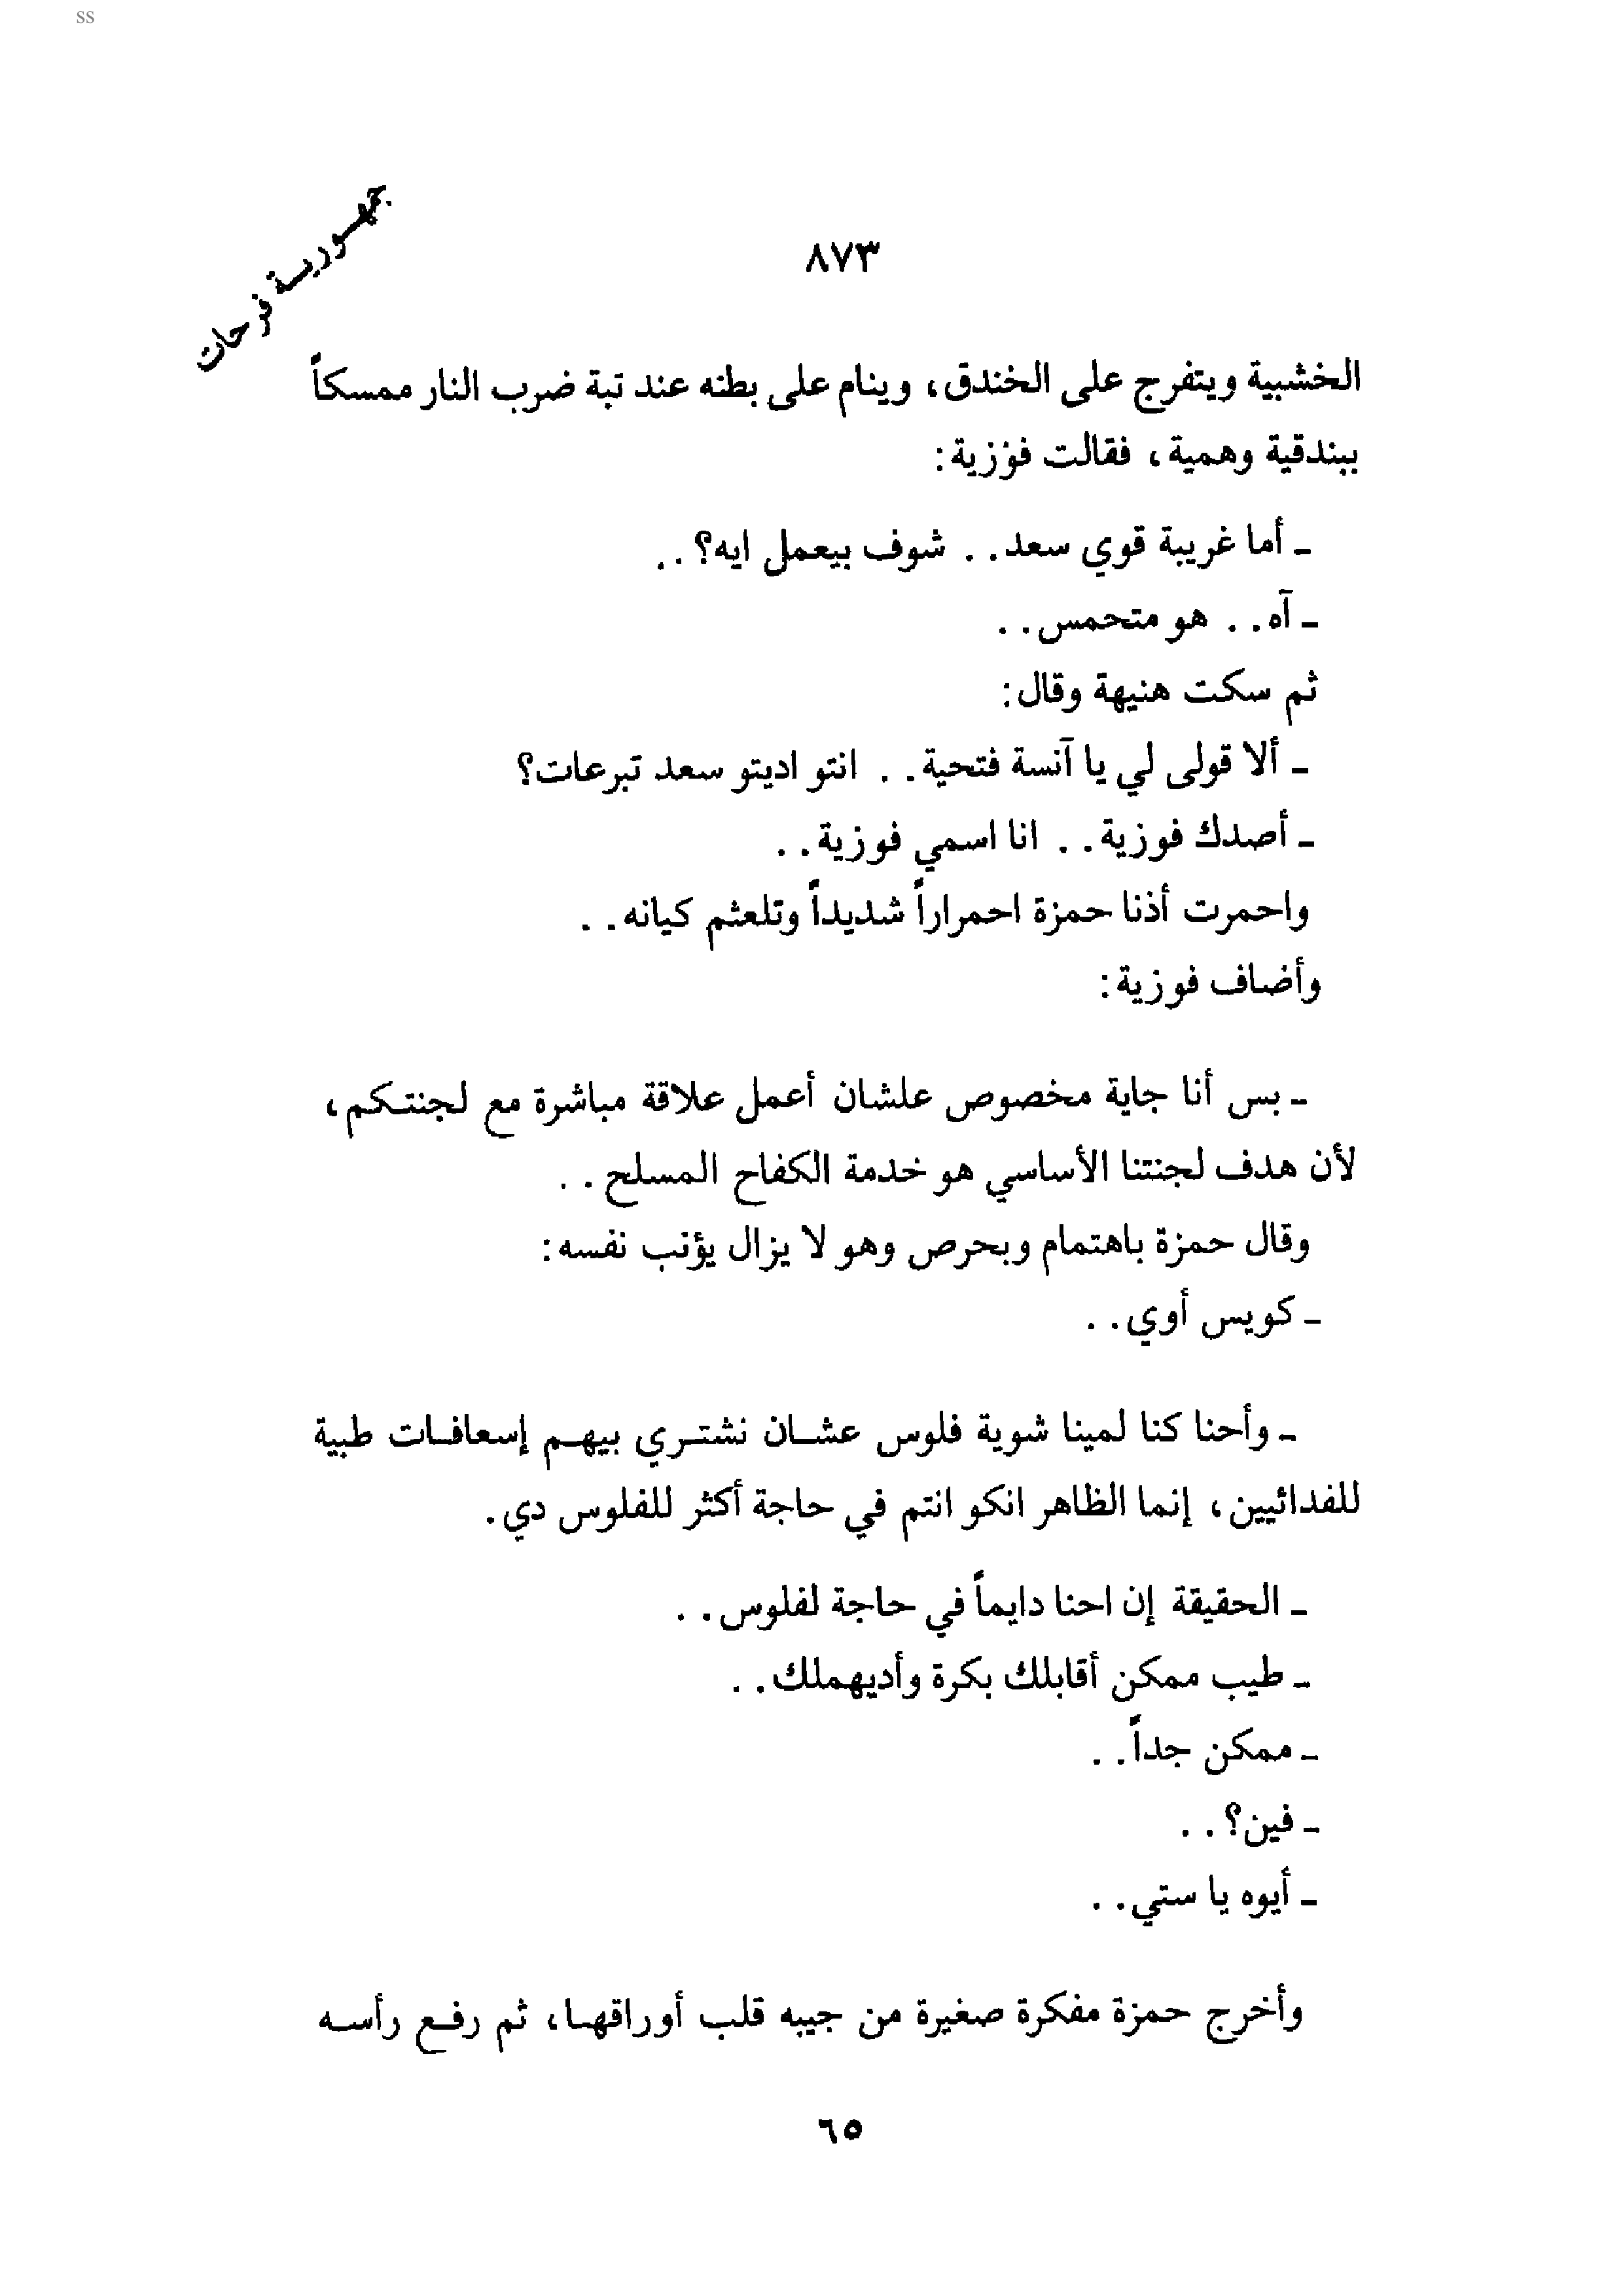 ss
جمهورية فرحات
٨٧٣
الخشبية ويتفرج على الخندق، وينام على بطنه عند تبة ضرب النار ممسكاً
ببندقية وهمية، فقالت فوزية:
ـ أما غريبة قوي سعد.. شوف بيعمل ايه؟..
ـ آه.. هو متحمس..
ثم سكت هنيهة وقال:
ـ ألا قولى لي يا آنسة فتحية.. انتو اديتو سعد تبرعات؟
ـ أصدك فوزية.. انا اسمي فوزية..
واحمرت أذنا حمزة احمراراً شديداً وتلعثم كيانه..
وأضاف فوزية:
ـ بس أنا جاية مخصوص علشان أعمل علاقة مباشرة مع لجنتكم،
لأن هدف لجنتنا الأساسي هو خدمة الكفاح المسلح..
وقال حمزة باهتمام وبحرص وهو لا يزال يؤنب نفسه:
ـ كويس أوي..
ـ وأحنا كنا لمينا شوية فلوس عشان نشتري بيهم إسعافات طبية
للفدائيين، إنما الظاهر انكو انتم في حاجة أكثر للفلوس دي.
ـ الحقيقة إن احنا دايماً في حاجة لفلوس..
ـ طيب ممكن أقابلك بكرة وأديهملك..
ـ ممكن جداً..
ـ فين؟..
ـ أيوه يا ستي..
وأخرج حمزة مفكرة صغيرة من جيبه قلب أوراقها، ثم رفع رأسه
٦٥